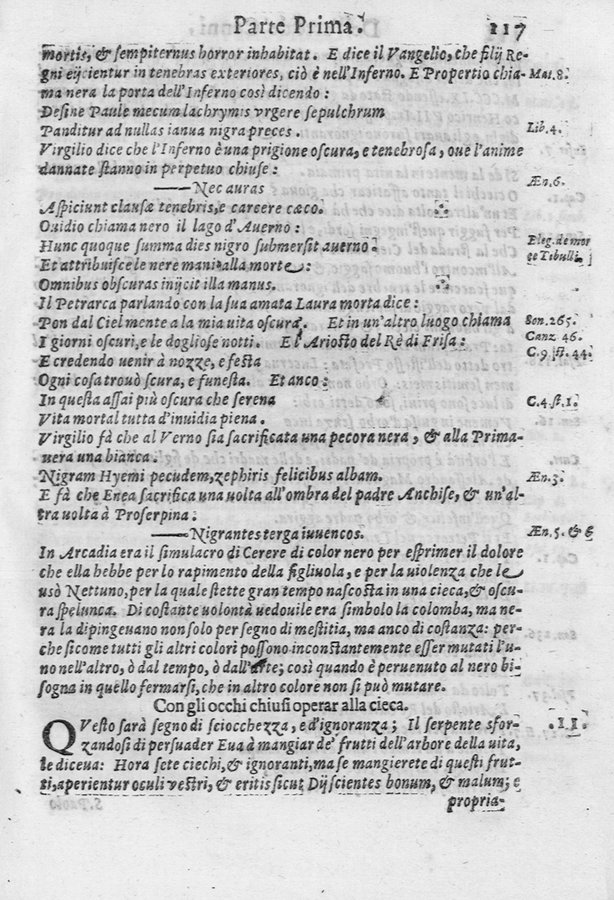 Parte Prima. 117
mortis, & sempiternus horror inhabitat. E dice il Vangelio, che filij Re-
gni eijcientur in tenebras exteriores, ciò è nell'Inferno. E Propertio chia- Mat. 8.
ma nera la porta dell'Inferno così dicendo:
Desine Paule mecum lachrymis vrgere sepulchrum
Panditur ad nullas ianua nigra preces. Lib. 4.
Virgilio dice che l'Inferno è una prigione oscura, e tenebrosa, oue l'anime
dannate stanno in perpetuo chiuse:
——Nec auras Æn. 6.
Aspiciunt clausæ tenebris, e carcere cæco.
Ouidio chiama nero il lago d'Auerno:
Hunc quoque summa dies nigro submersit auerno. Eleg. de mor
Et attribuisce le nere mani alla morte: te Tibulli.
Omnibus obscuras inijcit illa manus.
Il Petrarca parlando con la sua amata Laura morta dice:
Pon dal Ciel mente a la mia uita oscura. Et in un'altro luogo chiama Son. 265.
I giorni oscuri, e le dogliose notti. E l'Ariosto del Rè di Frisa: Canz. 46.
E credendo uenir à nozze, e festa C. 9. st. 44.
Ogni cosa trouò scura, e funesta. Et anco:
In questa assai più oscura che serena C. 4. st. 1.
Vita mortal tutta d'inuidia piena.
Virgilio fà che al Verno sia sacrificata una pecora nera, & alla Prima-
uera una bianca.
Nigram Hyemi pecudem, zephiris felicibus albam. Æn. 3.
E fà che Enea sacrifica una uolta all'ombra del padre Anchise, & un'al-
tra uolta à Proserpina:
——Nigrantes terga iuuencos. Æn. 5. & 6
In Arcadia era il simulacro di Cerere di color nero per esprimer il dolore
che ella hebbe per lo rapimento della figliuola, e per la uiolenza che le
usò Nettuno, per la quale stette gran tempo nascosta in una cieca, & oscu-
ra spelunca. Di costante uolontà uedouile era simbolo la colomba, ma ne-
ra la dipingeuano non solo per segno di mestitia, ma anco di costanza: per-
che sicome tutti gli altri colori possono inconstantemente esser mutati l'u-
no nell'altro, ò dal tempo, ò dall'arte; così quando è peruenuto al nero bi-
sogna in quello fermarsi, che in altro colore non si può mutare.
Con gli occhi chiusi operar alla cieca.
QVesto sarà segno di sciocchezza, e d'ignoranza; Il serpente sfor- 11.
zandosi di persuader Eua à mangiar de' frutti dell'arbore della uita,
le diceua: Hora sete ciechi, & ignoranti, ma se mangierete di questi frut-
ti, aperientur oculi vestri, & eritis sicut Dij scientes bonum, & malum; e
propria-